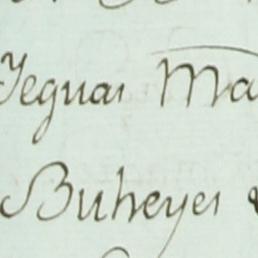 Yeguas Ma
Buheyes